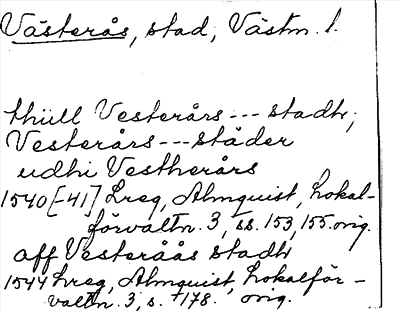 Västerås, stad, Västm. l.
thiill Vesterårs --- stadh,
Vesterårs --- städer
udhi Vestherårs
1540[-41] Lreg, Almquist, Lokal-
förvaltn. 3, ss. 153, 155. orig.
aff Vesteråås stadh
1544 Lreg, Almquist, Lokalför-
valtn. 3, s. 178. orig.